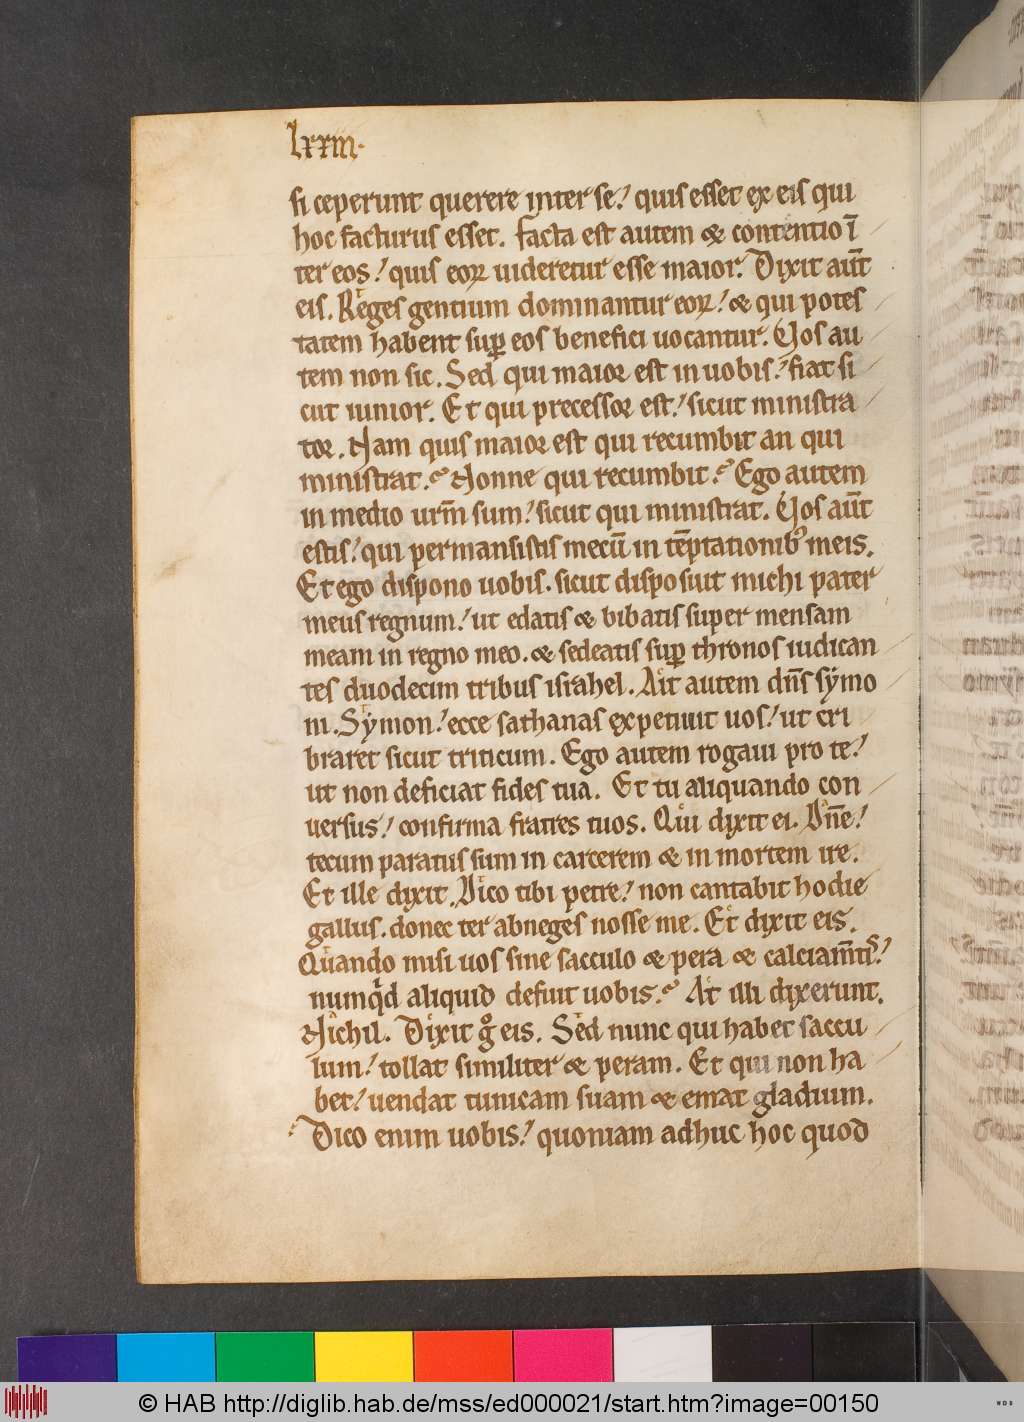 lxxiii.
si ceperunt querere inter se! quis esset ex eis qui
hoc facturus esset. Facta est autem & contentio ī
ter eos! quis eoꝝ uideretur esse maior. Dixit aut̄
eis. Reges gentium dominantur eoꝝ! & qui potes
tatem habent suꝑ eos benefici uocantur. Vos au
tem non sic. Sed qui maior est in uobis! fiat si
cut iunior. Et qui precessor est! sicut ministra
tor. Nam quis maior est qui recumbit an qui
ministrat? Nonne qui recumbit? Ego autem
in medio urm̄ sum! sicut qui ministrat. Vos aut̄
estis! qui permansistis mecū in tēptationibꝰ meis.
Et ego dispono uobis. sicut disposuit michi pater
meus regnum! ut edatis & bibatis super mensam
meam in regno meo. & sedeatis suꝑ thronos iudican
tes duodecim tribus israhel. Ait autem dn̄s symo
ni. Symon! ecce sathanas expetiuit uos! ut cri
braret sicut triticum. Ego autem rogaui pro te!
ut non deficiat fides tua. Et tu aliquando con
uersus! confirma fratres tuos. Qui dixit ei. Dn̄e!
tecum paratus sum in carcerem & in mortem ire.
Et ille dixit. Dico tibi petre! non cantabit hodie
gallus. donec ter abneges nosse me. Et dixit eis.
Quando misi uos sine sacculo & pera & calciam̄tis!
numqͥd aliquid defuit uobis? At illi dixerunt.
Nichil. Dixit gͦ eis. Sed nunc qui habet saccu
lum! tollat similiter & peram. Et qui non ha
bet! uendat tunicam suam & emat gladium.
Dico enim uobis! quoniam adhuc hoc quod
© HAB http://diglib.hab.de/mss/ed000021/start.htm?image=00150